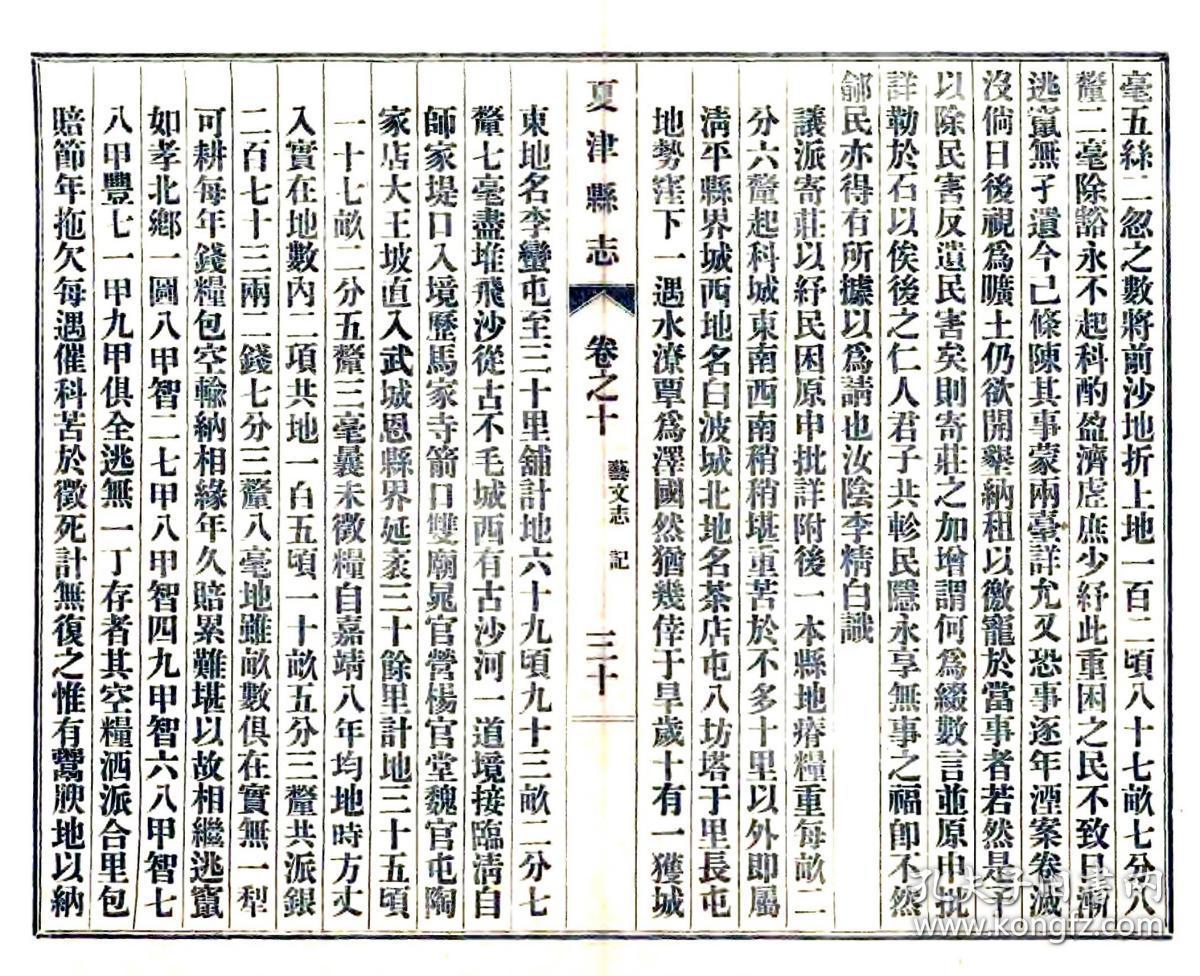 毫五絲二忽之數將前沙地折上地一百二頃八十七畝七分八
釐二毫除豁永不起科酌盈濟虛庶少紓此重困之民不致日漸
逃竄無孑遺今己條陳其事蒙兩臺詳允又恐事逐年湮案卷滅
沒倘日後視爲曠土仍欲開墾納租以徼寵於當事者若然是予
以除民害反遺民害矣則寄莊之加增謂何爲綴數言並原申批
詳勒於石以俟後之仁人君子共軫民隱永享無事之福卽不然
鄃民亦得有所據以爲請也汝陰李精白識
議派寄莊以紓民困原申批詳附後一本縣地瘠糧重每畝二
分六釐起科城東南西南稍稍堪重苦於不多十里以外卽屬
淸平縣界城西地名白波城北地名茶店屯八坊塔于里長屯
地勢窪下一遇水潦覃爲澤國然猶幾倖于旱歲十有一獲城
夏津縣志 卷之十 藝文志 記 三十
東地名李蠻屯至三十里舖計地六十九頃九十三畝二分七
釐七毫盡堆飛沙從古不毛城西有古沙河一道境接臨淸自
師家堤口入境歷馬家寺箭口雙廟晁官營楊官堂魏官屯陶
家店大王坡直入武城恩縣界延袤三十餘里計地三十五頃
一十七畝二分五釐三毫曩未徵糧自嘉靖八年均地時方丈
入實在地數內二項共地一百五頃一十畝五分三釐共派銀
二百七十三兩二錢七分三釐八毫地雖畝數俱在實無一犁
可耕每年錢糧包空輸納相緣年久賠累難堪以故相繼逃竄
如孝北鄉一圖八甲智二七甲八甲智四九甲智六八甲智七
八甲豐七一甲九甲俱全逃無一丁存者其空糧洒派合里包
賠節年拖欠每遇催科苦於徵死計無復之惟有鬻腴地以納
孔夫子旧书网
www.kongfz.com